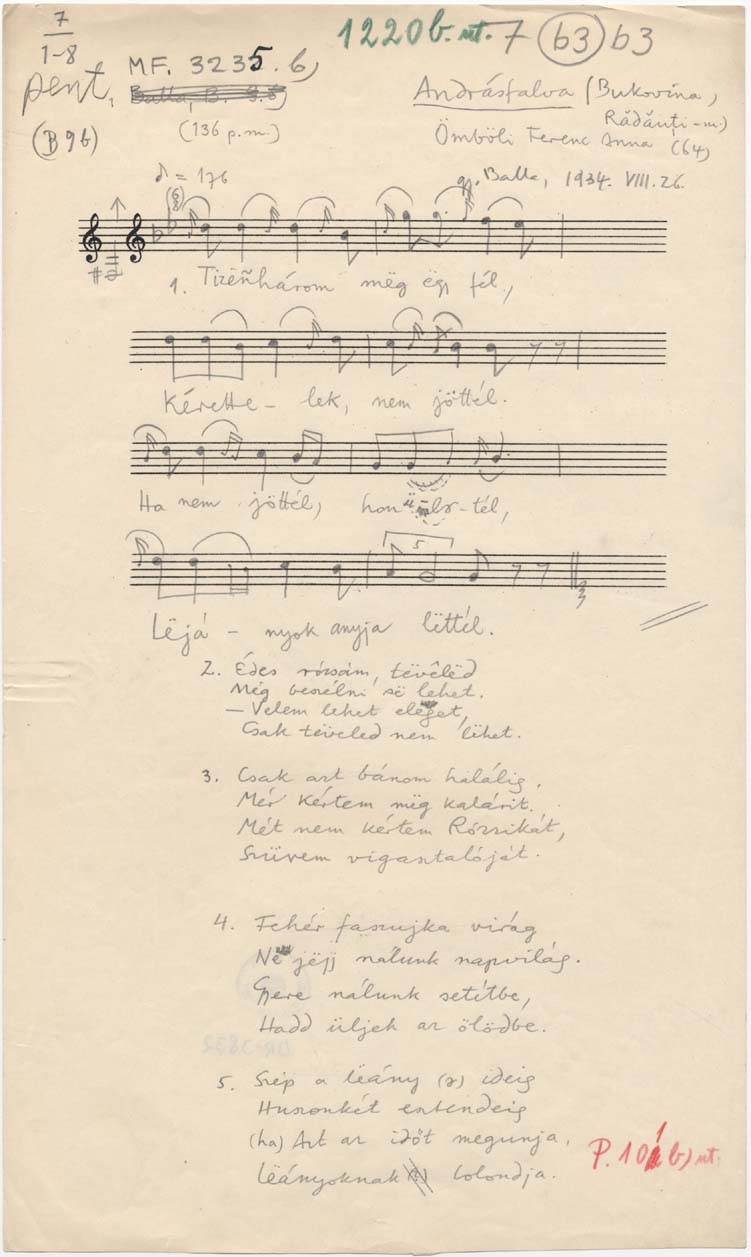 7
1-8
1220 b. ut. 7 (63) 63
pent.
MF. 3235. b)
Balla, B.
(B 9b)
(136 p.m.)
Andrásfalva (Bukovina,
Rădăuţi-m.)
Ömböli Ferenc Anna (64)
gy. Balla, 1934. VIII. 26.
♪ = 176
1. Tizënhárom mëg ëgy fél,
Kérette - lek, nem jöttél.
Ha nem jöttél, hon
tél,
5
Lëjá - nyok anyja lëttél.
2. Édes rózsám, tëvélëd
Még beszélni së lehet.
– Velem lehet elëget,
Csak tëvelëd nem lëhet.
3. Csak azt bánom halálig,
Mér kértem mëg Kalárit.
Mét nem kértem Rózsikát,
Szüvem vigasztalóját.
4. Fehér faszujka virág
Në jëjj nálunk napvilág.
Gyere nálunk setítbe,
Hadd üljek az ölödbe.
5. Szép a lëány (ə) ideig
Huszonkét esztendeig
(ha) Azt az időt megunja,
Lëányoknak bolondja.
P. 101 b) ut.